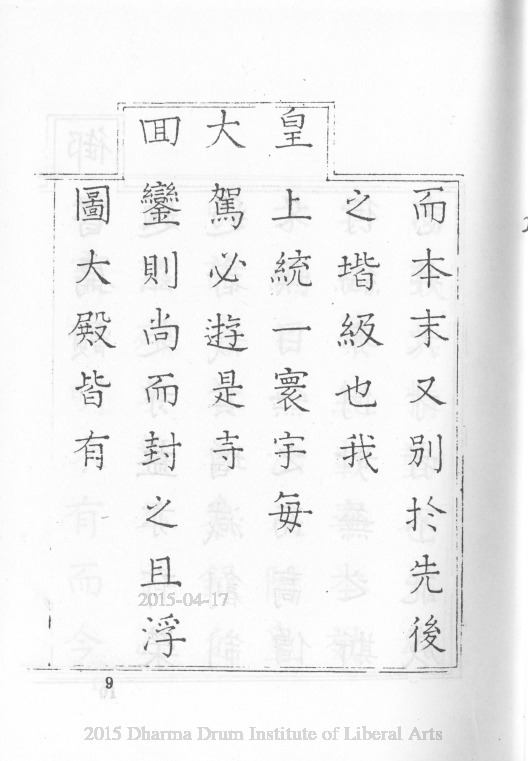 而本末又别於先後
之堦級也我
皇上統一寰宇每
大駕必遊是寺
回鑾則尚而封之且浮
圖大殿皆有
2015-04-17
9
2015 Dharma Drum Institute of Liberal Arts